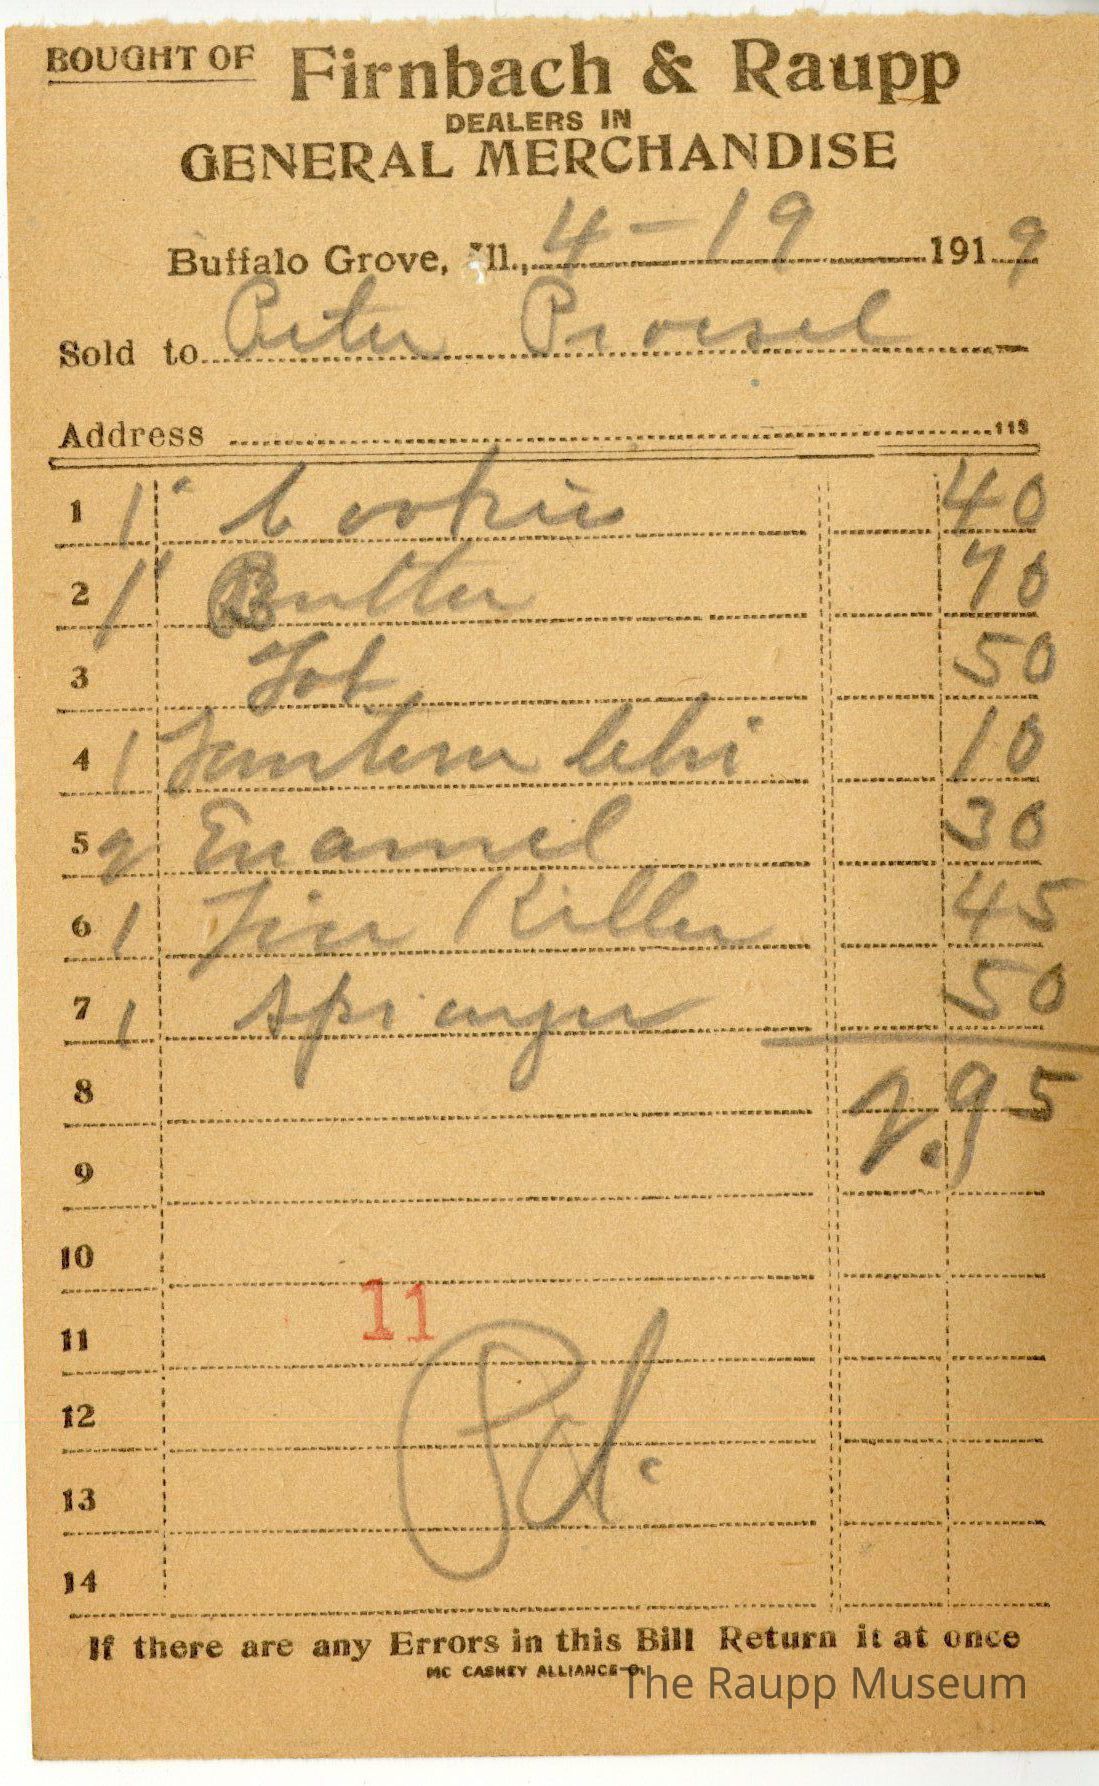 BOUGHT OF Firnbach & Raupp
DEALERS IN
GENERAL MERCHANDISE
Buffalo Grove, Ill., 4-19 1919
Sold to Peter Proesel
Address 113
1 1" Cookies 40
2 1" Butter 70
3 Tob 50
4 1 Lantern Chi 10
5 2 Enamel 30
6 1 Lice Killer 45
7 1 Sprayer 50
8 2.95
9
10
11
11
12
Pd.
13
14
If there are any Errors in this Bill Return it at once
MC CASKEY ALLIANCE O.
The Raupp Museum